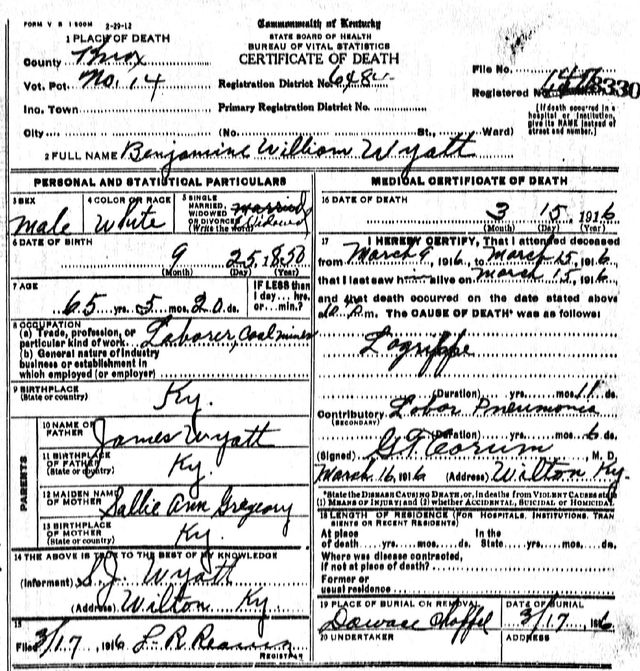 FORM V S 1 500M 2-29-12
Commonwealth of Kentucky
STATE BOARD OF HEALTH
BUREAU OF VITAL STATISTICS
CERTIFICATE OF DEATH
1 PLACE OF DEATH
County Knox
Vot. Pct. No. 14
Registration District No.
File No.
Registered No.
Inc. Town
Primary Registration District No.
[If death occurred in a hospital or institution, give its NAME instead of street and number.]
City (No. St., Ward)
2 FULL NAME Benjamine William Wyatt
PERSONAL AND STATISTICAL PARTICULARS
3 SEX Male
4 COLOR OR RACE White
5 SINGLE MARRIED, WIDOWED OR DIVORCED (Write the word) Married Widowed
6 DATE OF BIRTH 9 25, 1850
(Month) (Day) (Year)
7 AGE 65 yrs. 5 mos. 20 ds.
IF LESS than 1 day... hrs. or... min.?
8 OCCUPATION
(a) Trade, profession, or particular kind of work Laborer, Coal mines
(b) General nature of industry business or establishment in which employed (or employer)
9 BIRTHPLACE (State or country) Ky.
PARENTS
10 NAME OF FATHER James Wyatt
11 BIRTHPLACE OF FATHER (State or country) Ky.
12 MAIDEN NAME OF MOTHER Sallie Ann Gregory
13 BIRTHPLACE OF MOTHER (State or country) Ky.
14 THE ABOVE IS TRUE TO THE BEST OF MY KNOWLEDGE
(Informant) S.J. Wyatt
(Address) Wilton Ky.
15
Filed 3/17, 1916 L. R.
REGISTRAR
MEDICAL CERTIFICATE OF DEATH
16 DATE OF DEATH 3 15, 1916
(Month) (Day) (Year)
17 I HEREBY CERTIFY, That I attended deceased
from March 9, 1916, to March 15, 1916
that I last saw him alive on March 15, 1916
and that death occurred on the date stated above
at P.m. The CAUSE OF DEATH* was as follows:
Lagrippe
(Duration) yrs. mos. 11 ds.
Contributory Lobar Pneumonia
(SECONDARY)
(Duration) yrs. mos. 6 ds.
(Signed) G.T. Corum, M. D.
March 16, 1916 (Address) Wilton Ky.
*State the DISEASE CAUSING DEATH, or, in deaths from VIOLENT CAUSES state (1) MEANS OF INJURY; and (2) whether ACCIDENTAL, SUICIDAL or HOMICIDAL.
18 LENGTH OF RESIDENCE (FOR HOSPITALS, INSTITUTIONS, TRANSIENTS OR RECENT RESIDENTS)
At place of death yrs. mos. ds. In the State yrs. mos. ds.
Where was disease contracted, if not at place of death?
Former or usual residence
19 PLACE OF BURIAL OR REMOVAL
DATE OF BURIAL 3/17, 1916
20 UNDERTAKER
ADDRESS